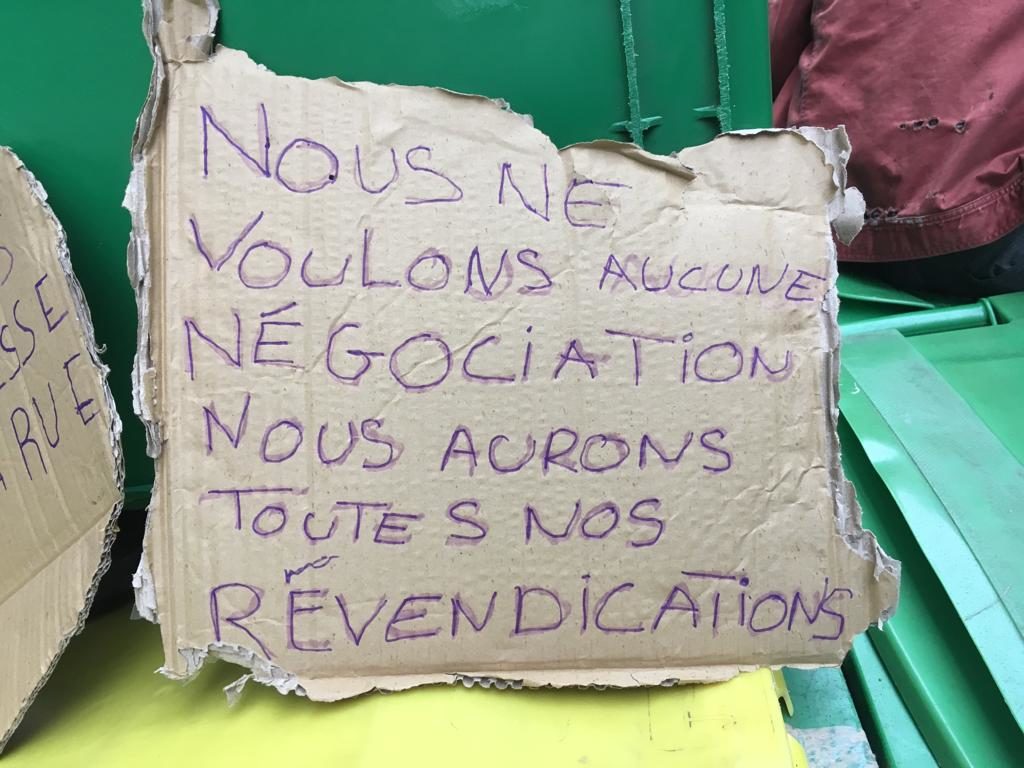 NOUS NE
VOULONS AUCUNE
NÉGOCIATION
NOUS AURONS
TOUTES NOS
REVENDICATIONS
ESSE
RUE